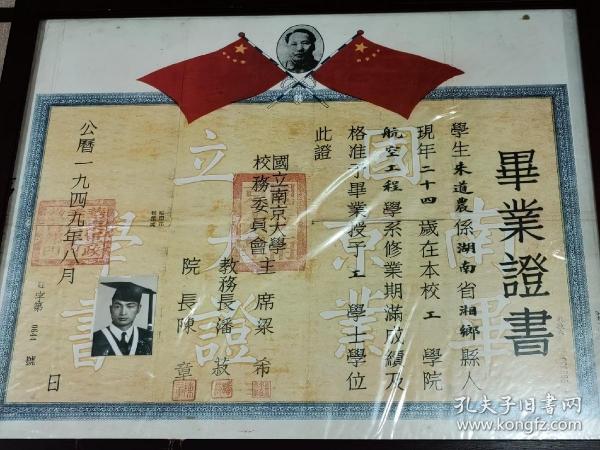 畢業證書
學生朱道農係湖南省湘鄉縣人
現年二十四歲在本校工學院
航空工程學系修業期滿成績及
格准予畢業授予工學士學位
此證
國立南京大學
校務委員會主席梁希
教務長潘菽
院長陳章
公曆一九四九年八月 日
字第 號
國立南京大學畢業證書
孔夫子旧书网
www.kongfz.com